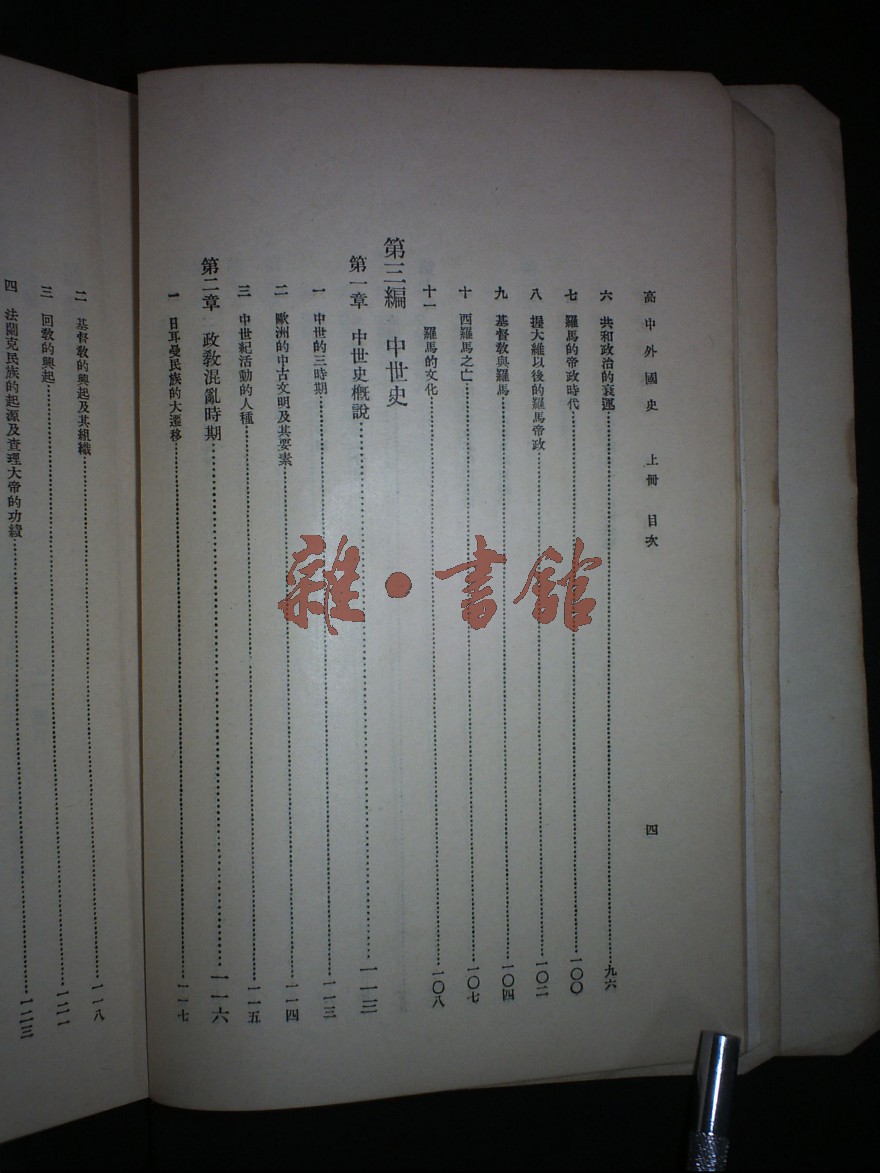 高中外國史 上冊 目次 四
六 共和政治的衰運……九六
七 羅馬的帝政時代……一〇〇
八 握大維以後的羅馬帝政……一〇二
九 基督敎與羅馬……一〇四
十 西羅馬之亡……一〇七
十一 羅馬的文化……一〇八
第三編 中世史
第一章 中世史槪說……一一三
一 中世的三時期……一一三
二 歐洲的中古文明及其要素……一一四
三 中世紀活動的人種……一一五
第二章 政敎混亂時期……一一六
一 日耳曼民族的大遷移……一一七
二 基督敎的興起及其組織……一一八
三 回敎的興起……一二一
四 法蘭克民族的起源及查理大帝的功績……一二三
雜·書館